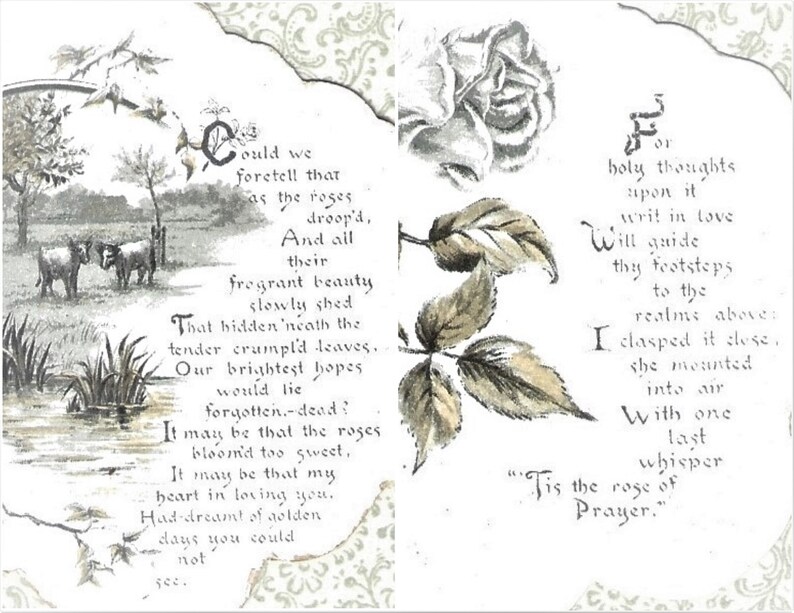 Could we
foretell that
as the roses
droop'd,
And all
their
fragrant beauty
slowly shed
That hidden 'neath the
tender crumpl'd leaves,
Our brightest hopes
would lie
forgotten,-dead?
It may be that the roses
bloom'd too sweet,
It may be that my
heart in loving you,
Had dreamt of golden
days you could
not
see.
For
holy thoughts
upon it
writ in love
Will guide
thy footsteps
to the
realms above:
I clasped it close,
she mounted
into air
With one
last
whisper
"'Tis the rose of
Prayer."